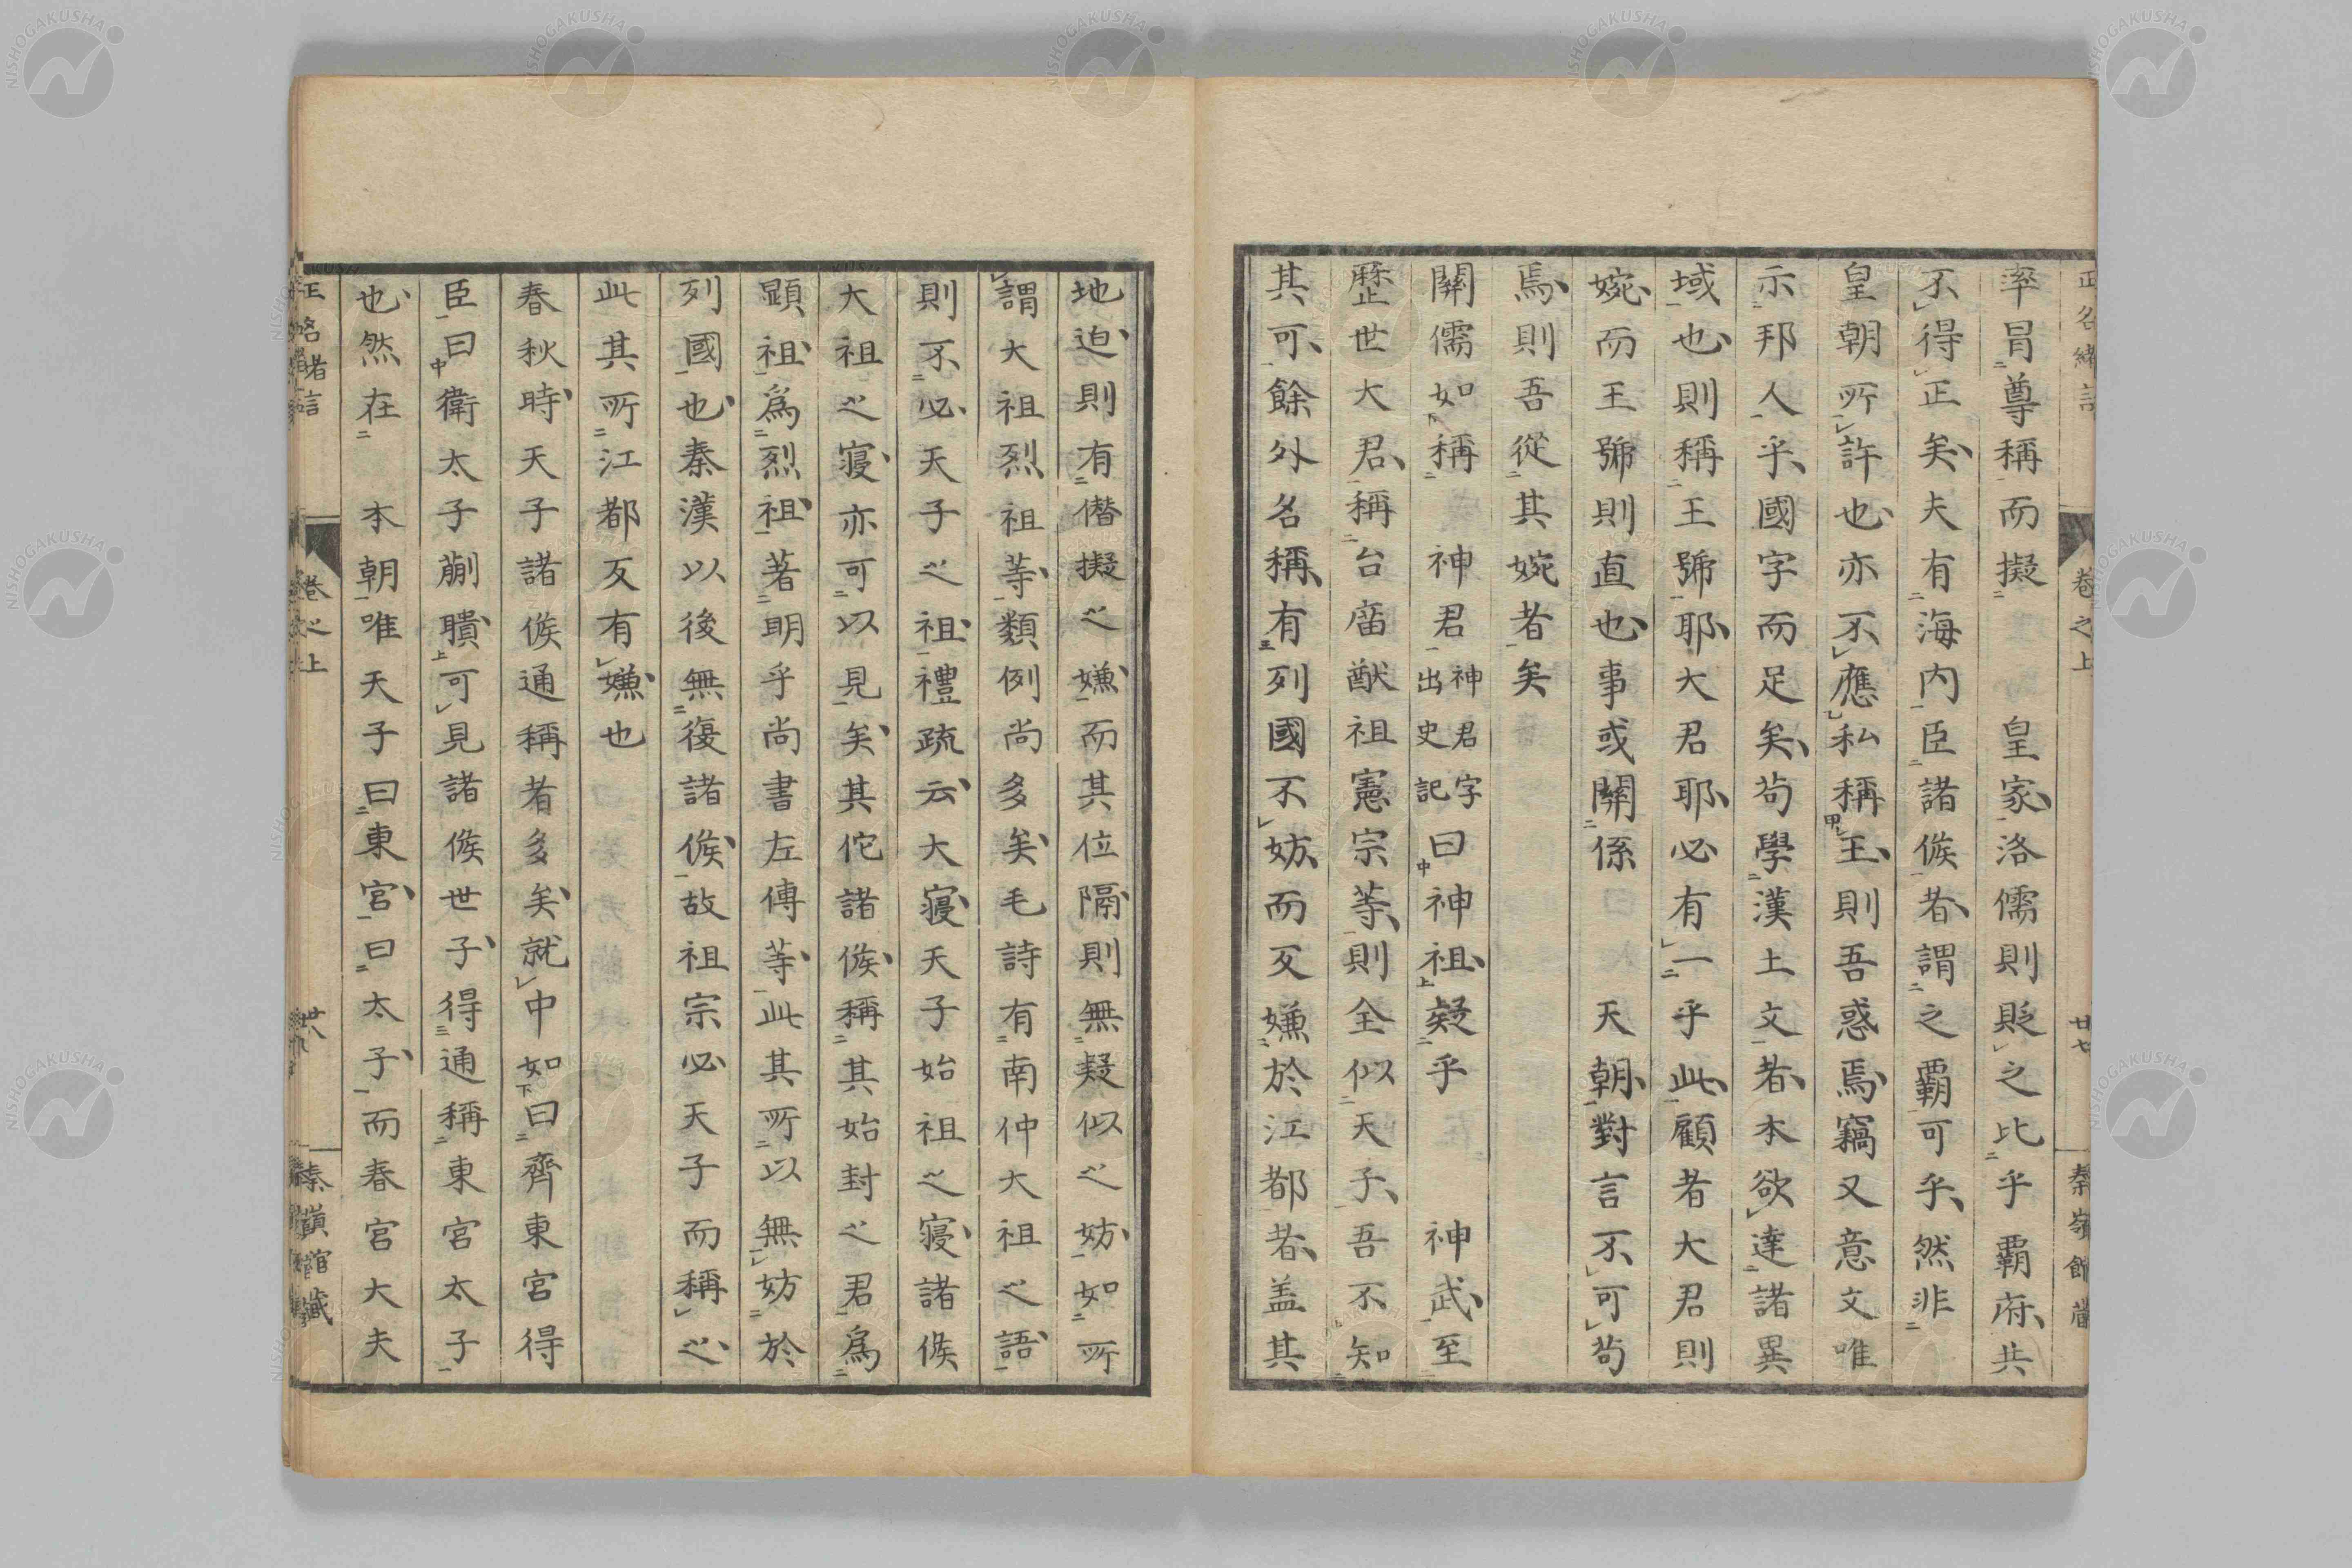 正名緒言 卷之上 廿七 秦嶺館藏
率冒尊稱而擬 皇家洛儒則貶之比乎覇府共
不得正矣夫有海内臣諸侯者謂之覇可乎然非
皇朝所許也亦不應私稱王則吾惑焉竊又意文唯
示邦人乎國字而足矣茍學漢土文者本欲達諸異
域也則稱王號耶大君耶必有一乎此顧者大君則
婉而王號則直也事或關係 天朝對言不可茍
焉則吾從其婉者矣
關儒如稱 神君神君字出史記曰神祖疑乎 神武至
歷世大君稱台庿猷祖憲宗等則全似天子吾不知
其可餘外名稱有列國不妨而反嫌於江都者盖其
地迫則有僭擬之嫌而其位隔則無疑似之妨如所
謂大祖烈祖等類例尚多矣毛詩有南仲大祖之語
則不必天子之祖禮疏云大寢天子始祖之寢諸侯
大祖之寢亦可以見矣其佗諸侯稱其始封之君爲
顕祖爲烈祖著明乎尚書左傳等此其所以無妨於
列國也秦漢以後無復諸侯故祖宗必天子而稱之
此其所江都反有嫌也
春秋時天子諸侯通稱者多矣就中如曰齊東宮得
臣曰衛太子蒯聵可見諸侯世子得通稱東宮太子
也然在 本朝唯天子曰東宮曰太子而春宮大夫
正名緒言 卷之上 廿八 秦嶺館藏